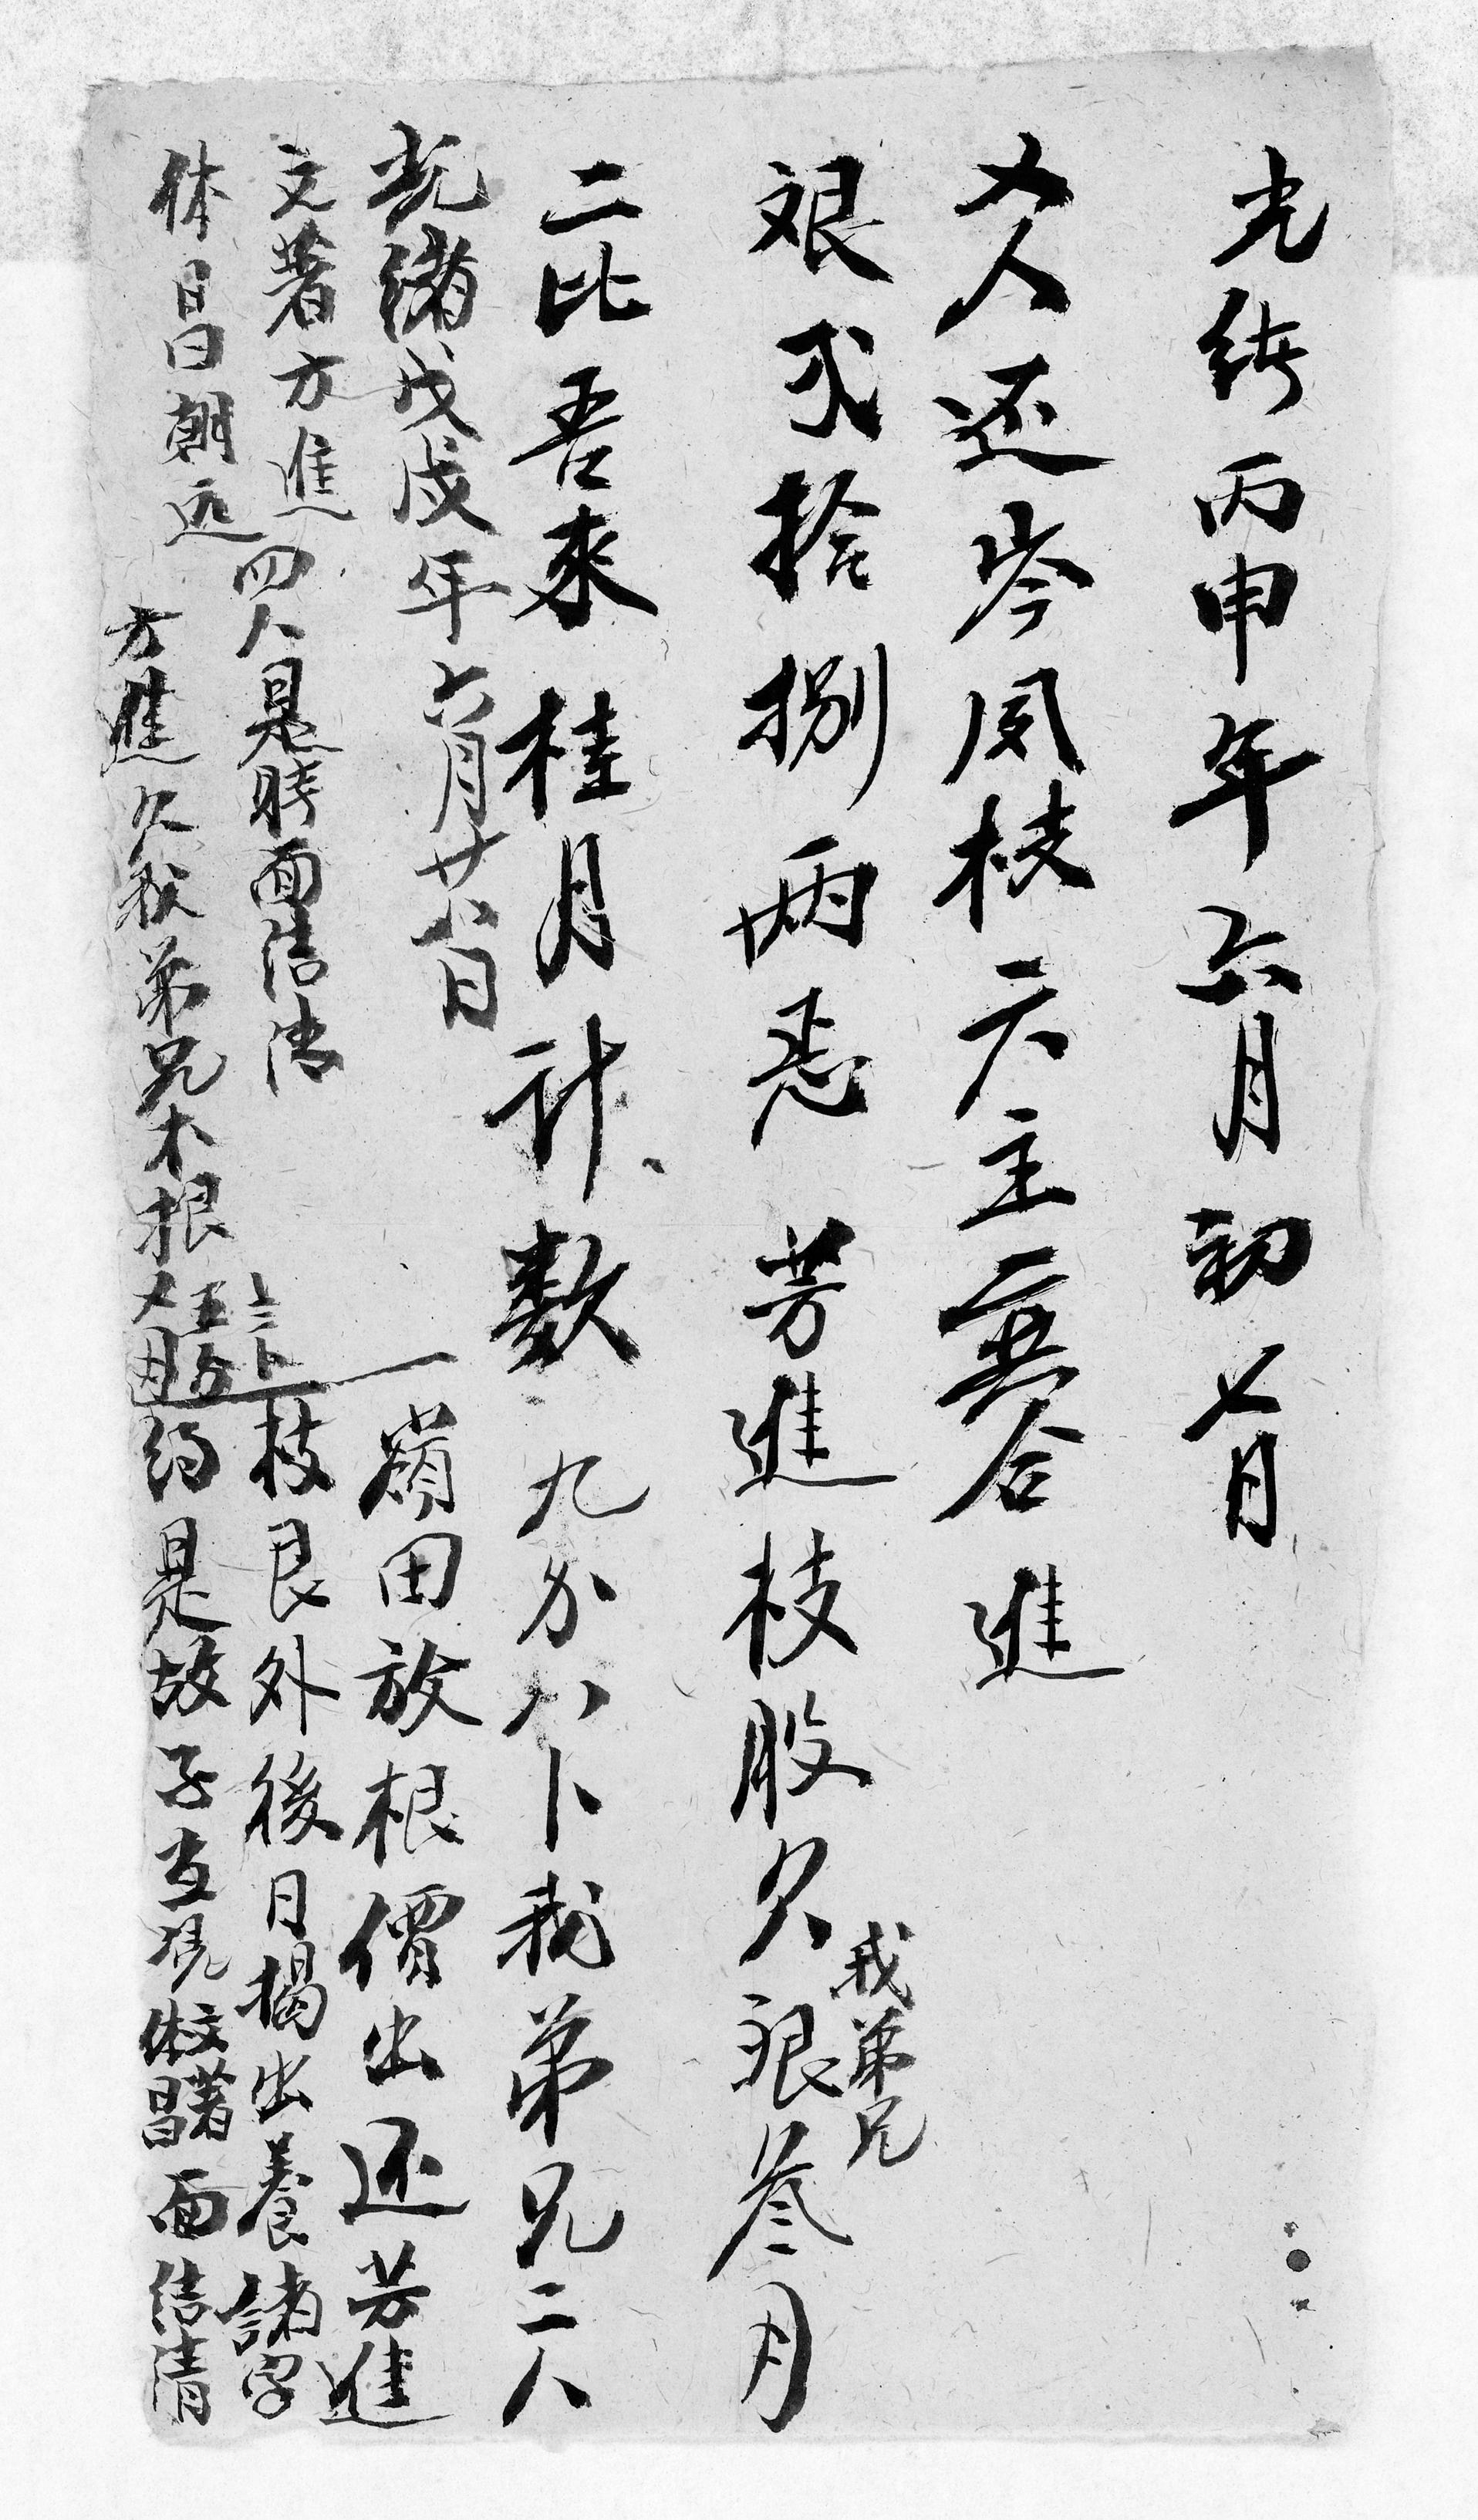 光緒丙申年六月初七日
人还岑凤枝六主合進
艮弍拾捌両 芳進枝股欠我弟兄艮叁月
二比吾來 桂月計数 九分八卜我弟兄二人
光緒戊戌年六月廿八日 一嶺田放根價出还芳進
文著方進四人是時面結清 枝艮外後日揭出養諸字
休昌朝远 方進欠我弟兄木根 約是故子立現休文昌著面结清